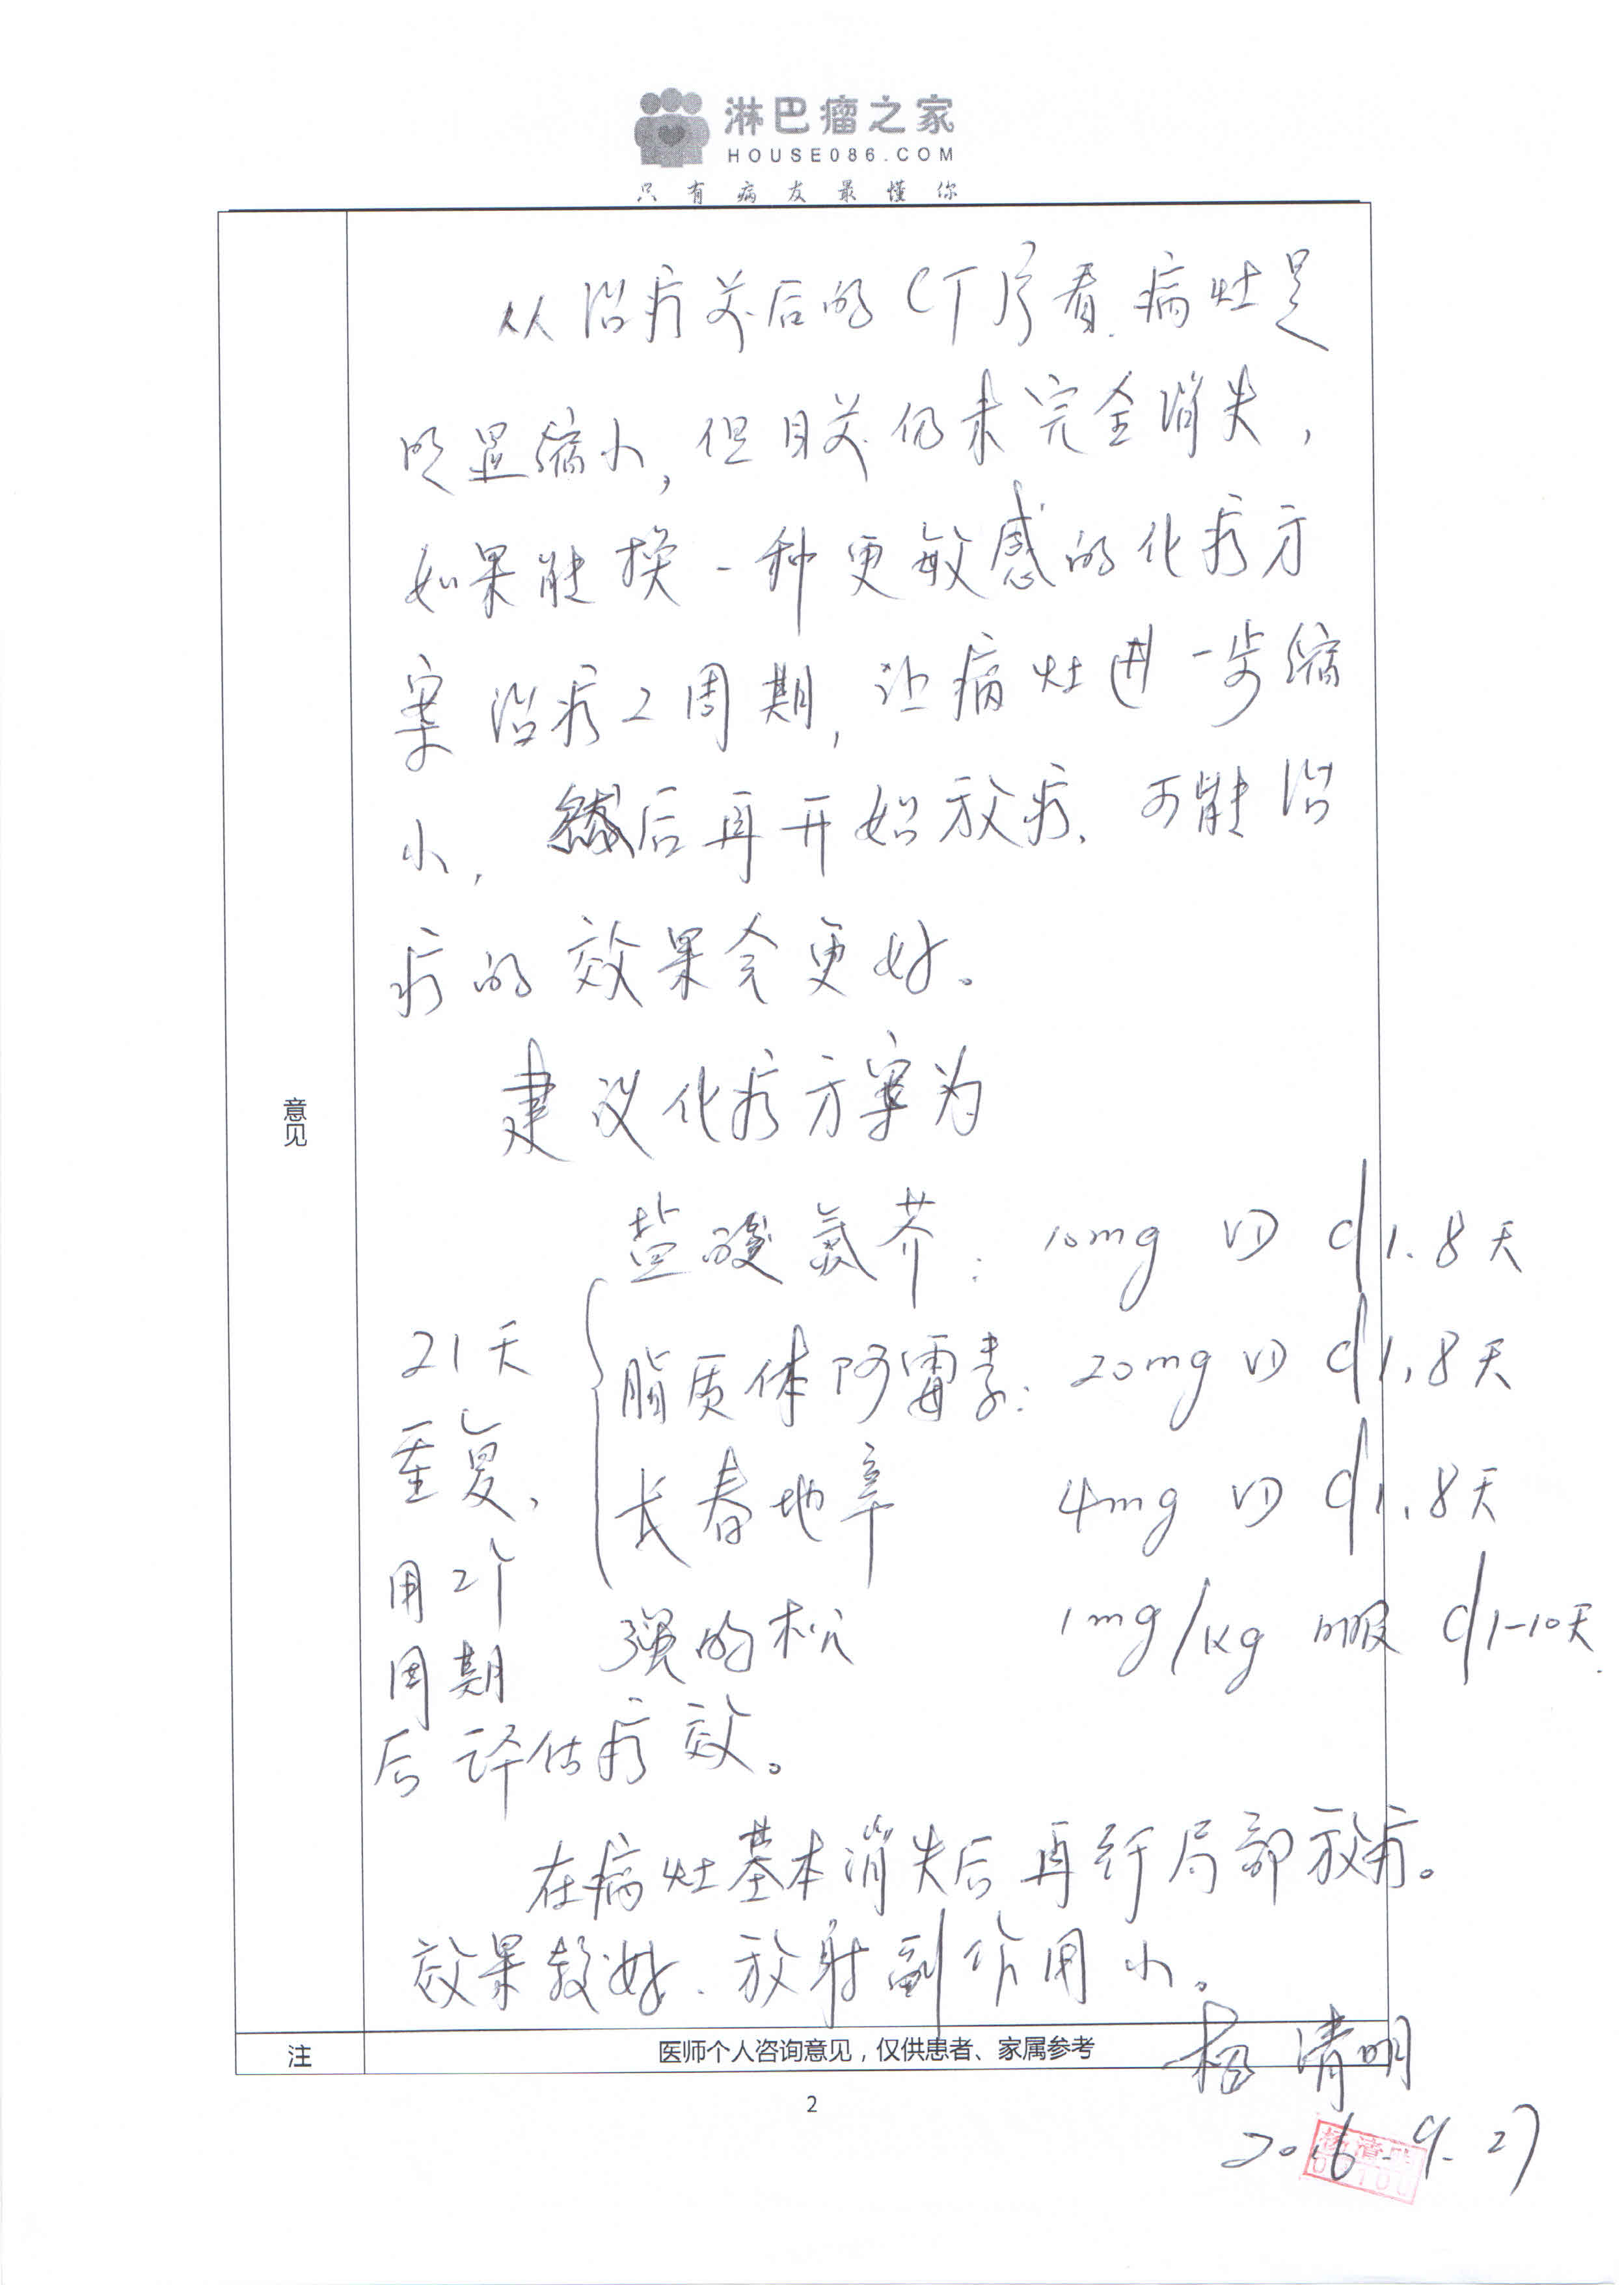 淋巴瘤之家
HOUSE086.COM
只有病友最懂你
意见
从治疗前后的CT片看,病灶是
明显缩小,但目前仍未完全消失,
如果能换一种更敏感的化疗方
案治疗2周期,让病灶进一步缩
小,然后再开始放疗,可能治
疗的效果会更好。
建议化疗方案为
盐酸氮芥: 10mg VD d1.8天
脂质体阿霉素: 20mg VD d1,8天
长春地辛 4mg VD d1.8天
强的松 1mg/kg 口服 d1-10天.
21天
重复,
用2个
周期
后评估疗效。
在病灶基本消失后再行局部放疗。
效果较好、放射副作用小。
注
医师个人咨询意见,仅供患者、家属参考
杨清明
2016.9.27
2